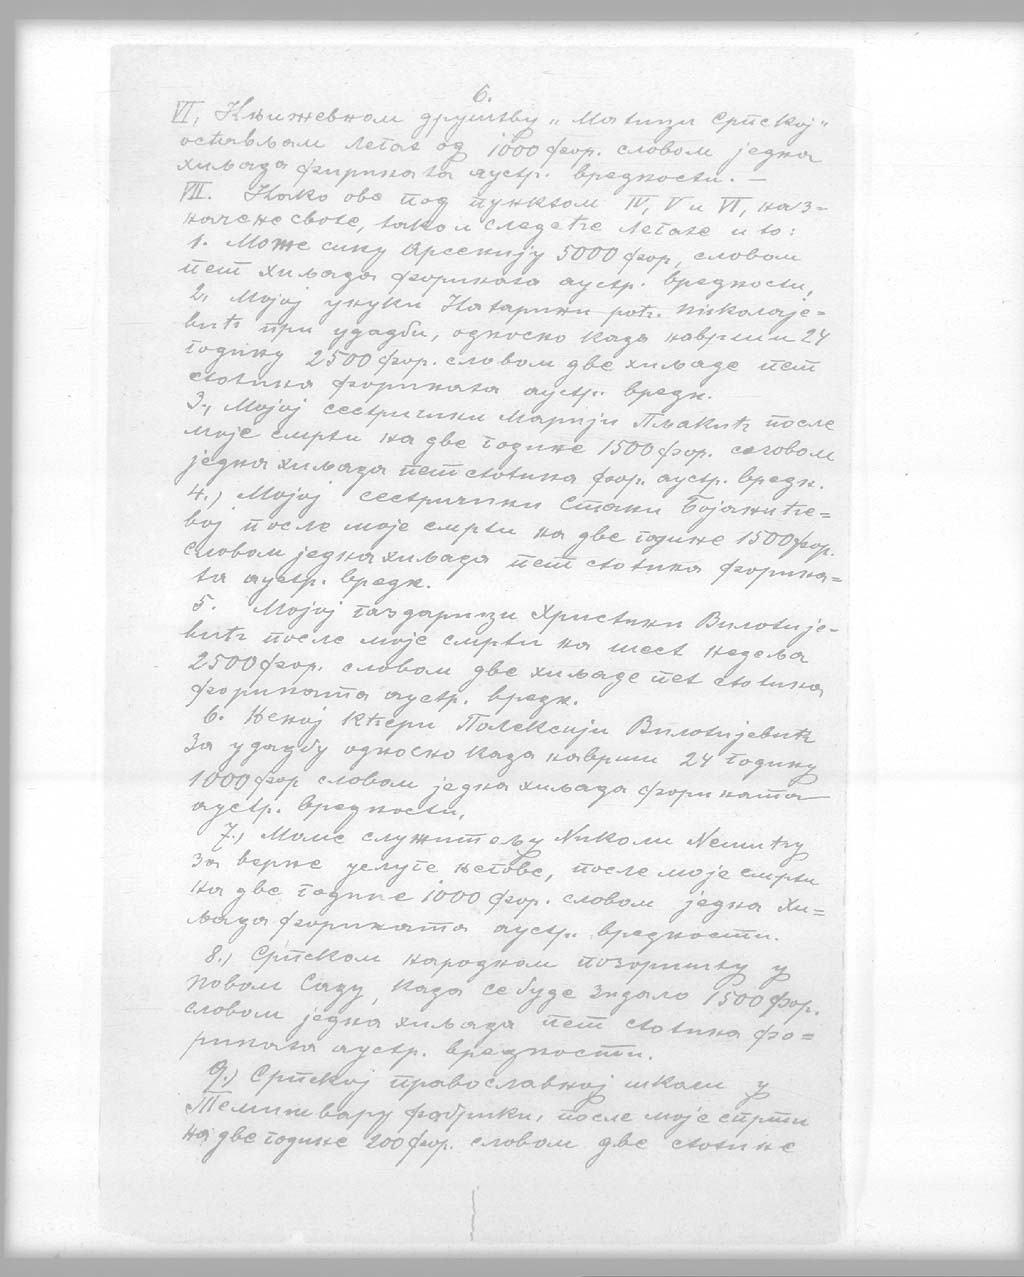 6.
VI, Књижевном друштву „Матици Српској"
остављам легат од 1000 фор. словом једна
хиљада форината аустр. вредности. —
VII. Како ове под пунктом IV, V и VI, наз=
начене своте, тако и следеће легате и то:
1. Може сину Арсенију 5000 фор, словом
пет хиљада форината аустр. вредности,
2, Мојој унуки Катарини рођ. Николаје=
вић при удадби, односно када наврши 24
годину 2500 фор. словом две хиљаде пет
стотина форината аустр. вредн.
3., Мојој сестричини Марији Пљакић после
моје смрти на две године 1500 фор. словом
једна хиљада пет стотина фор. аустр. вредн.
4.) Мојој сестричини Стани Бојаниће=
вој после моје смрти на две године 1500 фор.
словом једна хиљада пет стотина форина=
та аустр. вредн.
5. Мојој газдарици Христини Вилотије-
вић после моје смрти на шест недеља
2500 фор. словом две хиљаде пет стотина
форината аустр. вредн.
6. Њеној кћери Полексији Вилотијевић
за удадбу односно када наврши 24 годину
1000 фор словом једна хиљада форината
аустр. вредности,
7.) Моме служитељу Николи
за верне услуге његове, после моје смрти
на две године 1000 фор. словом једна хи=
љада форината аустр. вредности.
8.) Српском народном позоришту у
Новом Саду, када се буде зидало 1500 фор.
словом једна хиљада пет стотина фо=
рината аустр. вредности.
9.) Српској православној школи у
Темишвару фабрики, после моје смрти
на две године 200 фор. словом две стотине